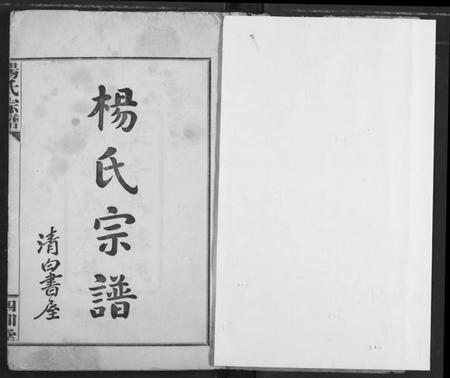 楊氏宗譜
清白書屋
楊氏宗譜
四知堂